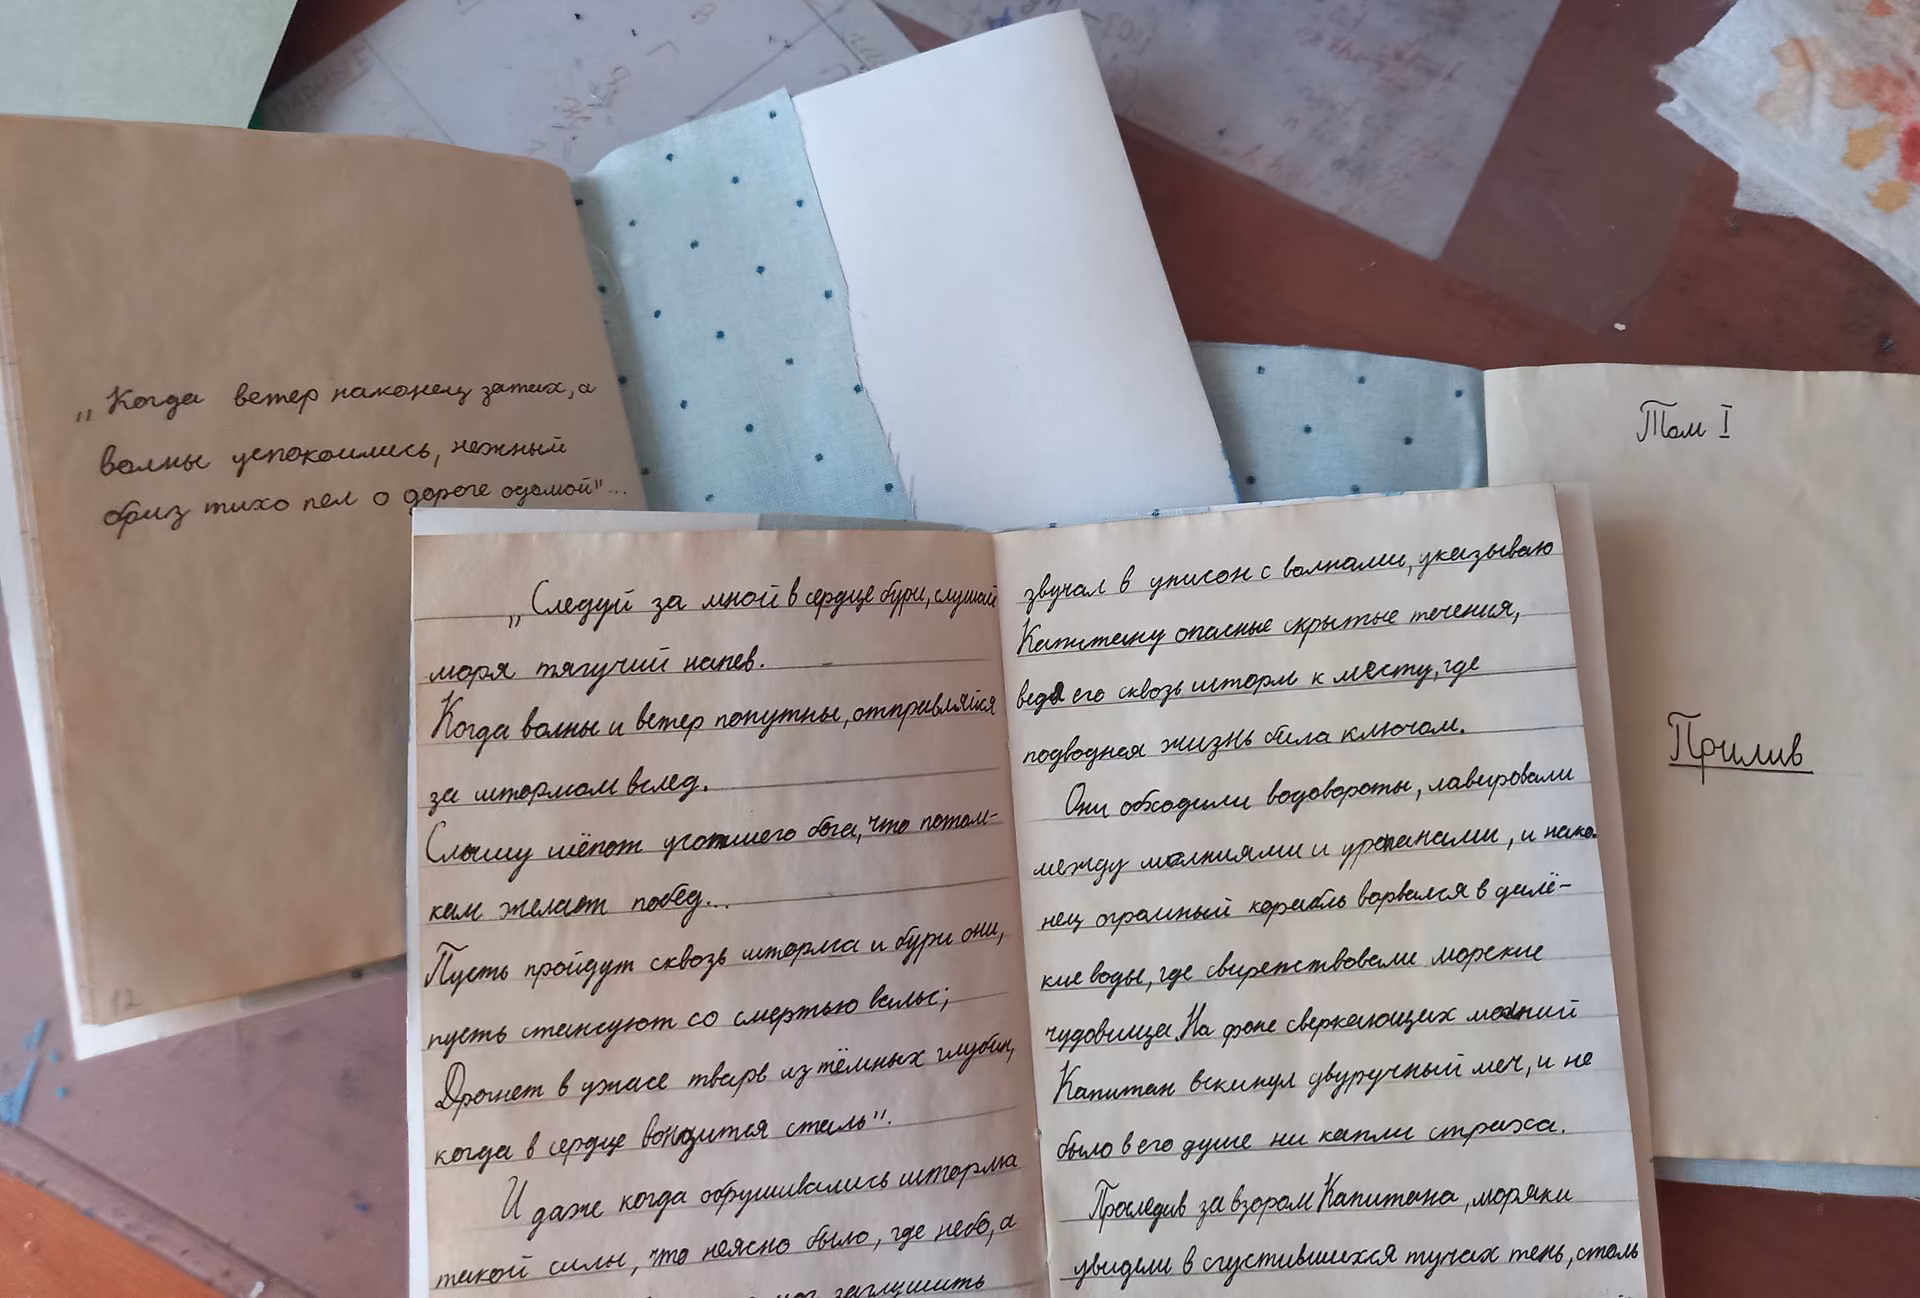 „Когда ветер наконец затих, а
волны успокоились, нежный
бриз тихо пел о дороге одомой"...
12
Том I
Прилив
„Следуй за мной в сердце бури, слушай
моря тягучий напев.
Когда волны и ветер попутны, отправляйся
за штормом вслед.
Слышу шёпот усопшего бога, что потом-
кам желает побед...
Пусть пройдут сквозь шторма и бури они,
пусть станцуют со смертью вальс;
Дрогнет в ужасе тварь из тёмных глубин,
когда в сердце вонзится сталь".
И даже когда обрушивались шторма
такой силы, что неясно было, где небо, а
заглушить
звучал в унисон с волнами, указываю
Капитану опасные скрытые течения,
ведя его сквозь шторм к месту, где
подводная жизнь била ключом.
Они обходили водовороты, лавировали
между молниями и ураганами, и нако-
нец огромный корабль ворвался в далё-
кие воды, где свирепствовали морские
чудовища. На фоне сверкающих молний
Капитан вскинул двуручный меч, и не
было в его душе ни капли страха.
Проследив за взором Капитана, моряки
увидели в сгустившихся тучах тень, столь